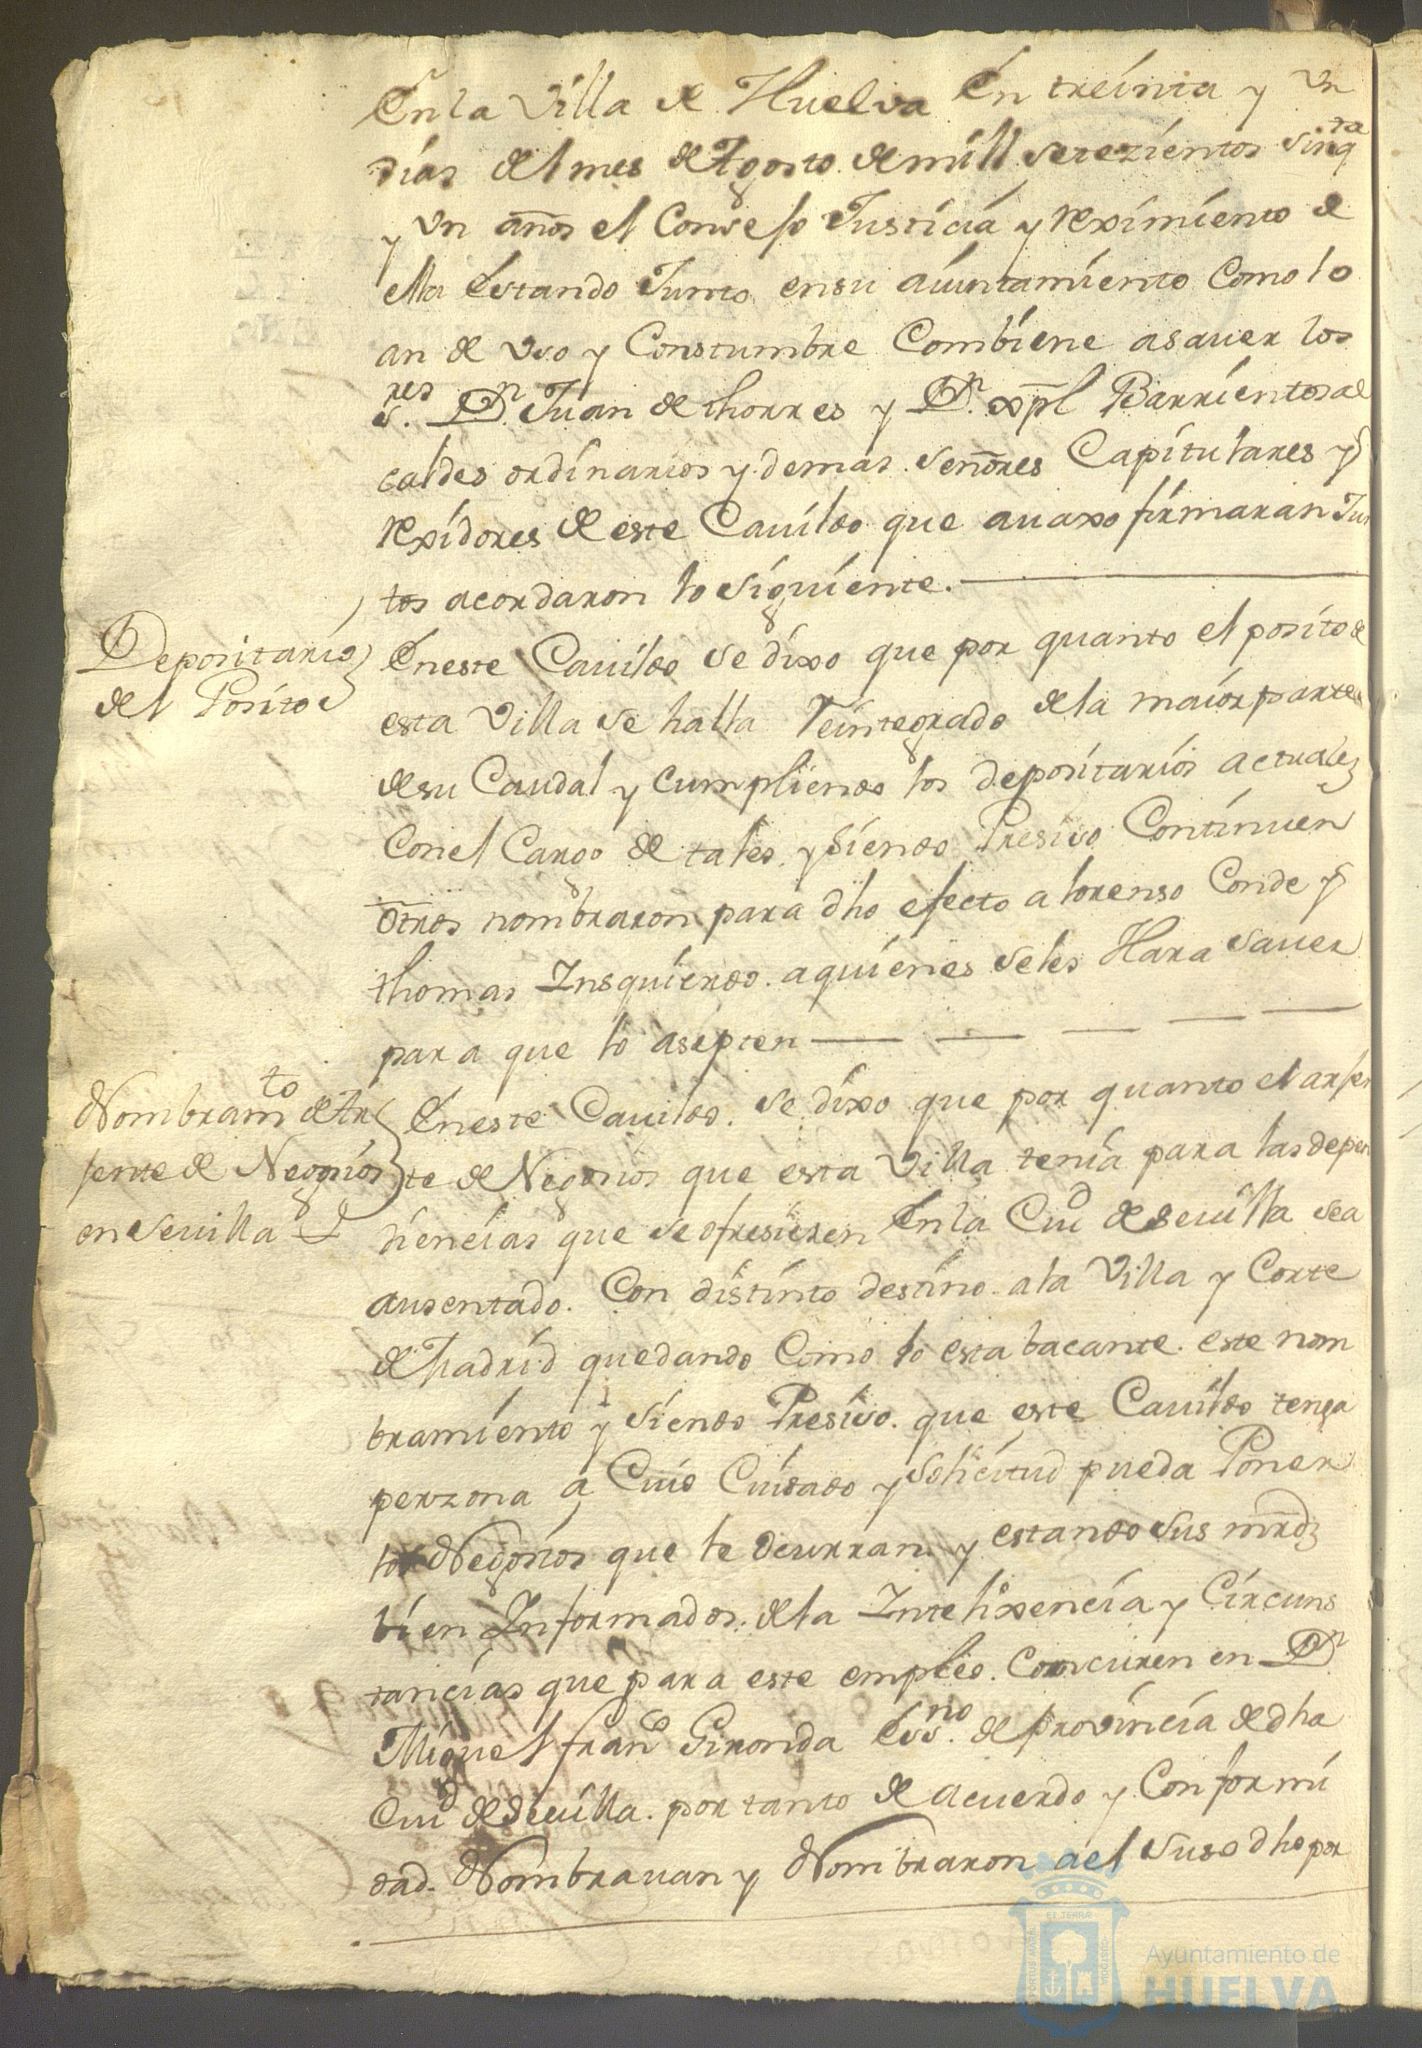 En la Villa de Huelva En treinta y Un
dias del mes de Agosto de mill setezientos sinq.ta
y Un años el Consejo Justicia y reximiento de
ella Estando Junto en su aiuntamiento Como lo
an de Uso y Constumbre Combiene asauer los
s.res Dn Juan de thorres y Dn. xpl Barrientos al
caldes ordinarios y demas señores Capitulares y
rexidores de este Cauildo que auaxo firmaran Jun
tos acordaron lo siguiente.
Depositarios
del Posito
En este Cauildo se dixo que por quanto el posito de
esta Villa se halla reintegrado de la maior parte
de su Caudal y cumpliendo los depositarios actuales
Con el Cargo de tales y siendo Presiso Continuen
otros nombraron para dho efecto a lorenso Conde y
thomas Insquierdo. a quienes seles Hara sauer
para que lo asepten
Nombram.to de Ax
jente de Negosios
en Seuilla
En este Cauildo. se dixo que por quanto el axjen
te de Negosios que esta Villa tenia para las depen
diencias que se ofresieren En la Ciud de Seuilla sea
ausentado. Con distinto destino a la Villa y Corte
de Madrid quedando Como lo esta bacante. este nom
bramiento y siendo Presiso. que este Cauildo tenga
perzona a Cuio Cuidado y Solicitud pueda Poner
los Negosios que le ocurran y estando sus mrdz
bien Informados. de la Intelixencia y Circuns
tancias que para este empleo. Concuren en Dn
Miguel franco Gironda Ess.no de provincia de dha
Ciud de Seuilla. por tanto de acuerdo y Conformi
dad. Nombrauan y Nombraron a el suso dho por
Ayuntamiento de
HUELVA